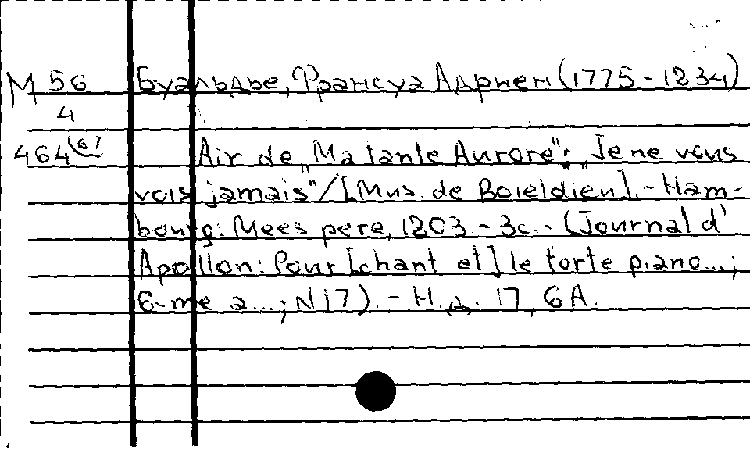 М 56 Буальдье, Франсуа Адриен (1775-1834)
4
464(6) Air de „Ma tante Aurore": „Je ne vous
vois jamais"/[Mus. de Boieldien]. - Ham-
bourg: Mees pere, 1803 - 3c. - (Journal d'
Apollon: Pour [chant et] le forte piano...;
6-me a...; N17). - Н.д. 17, 6A.